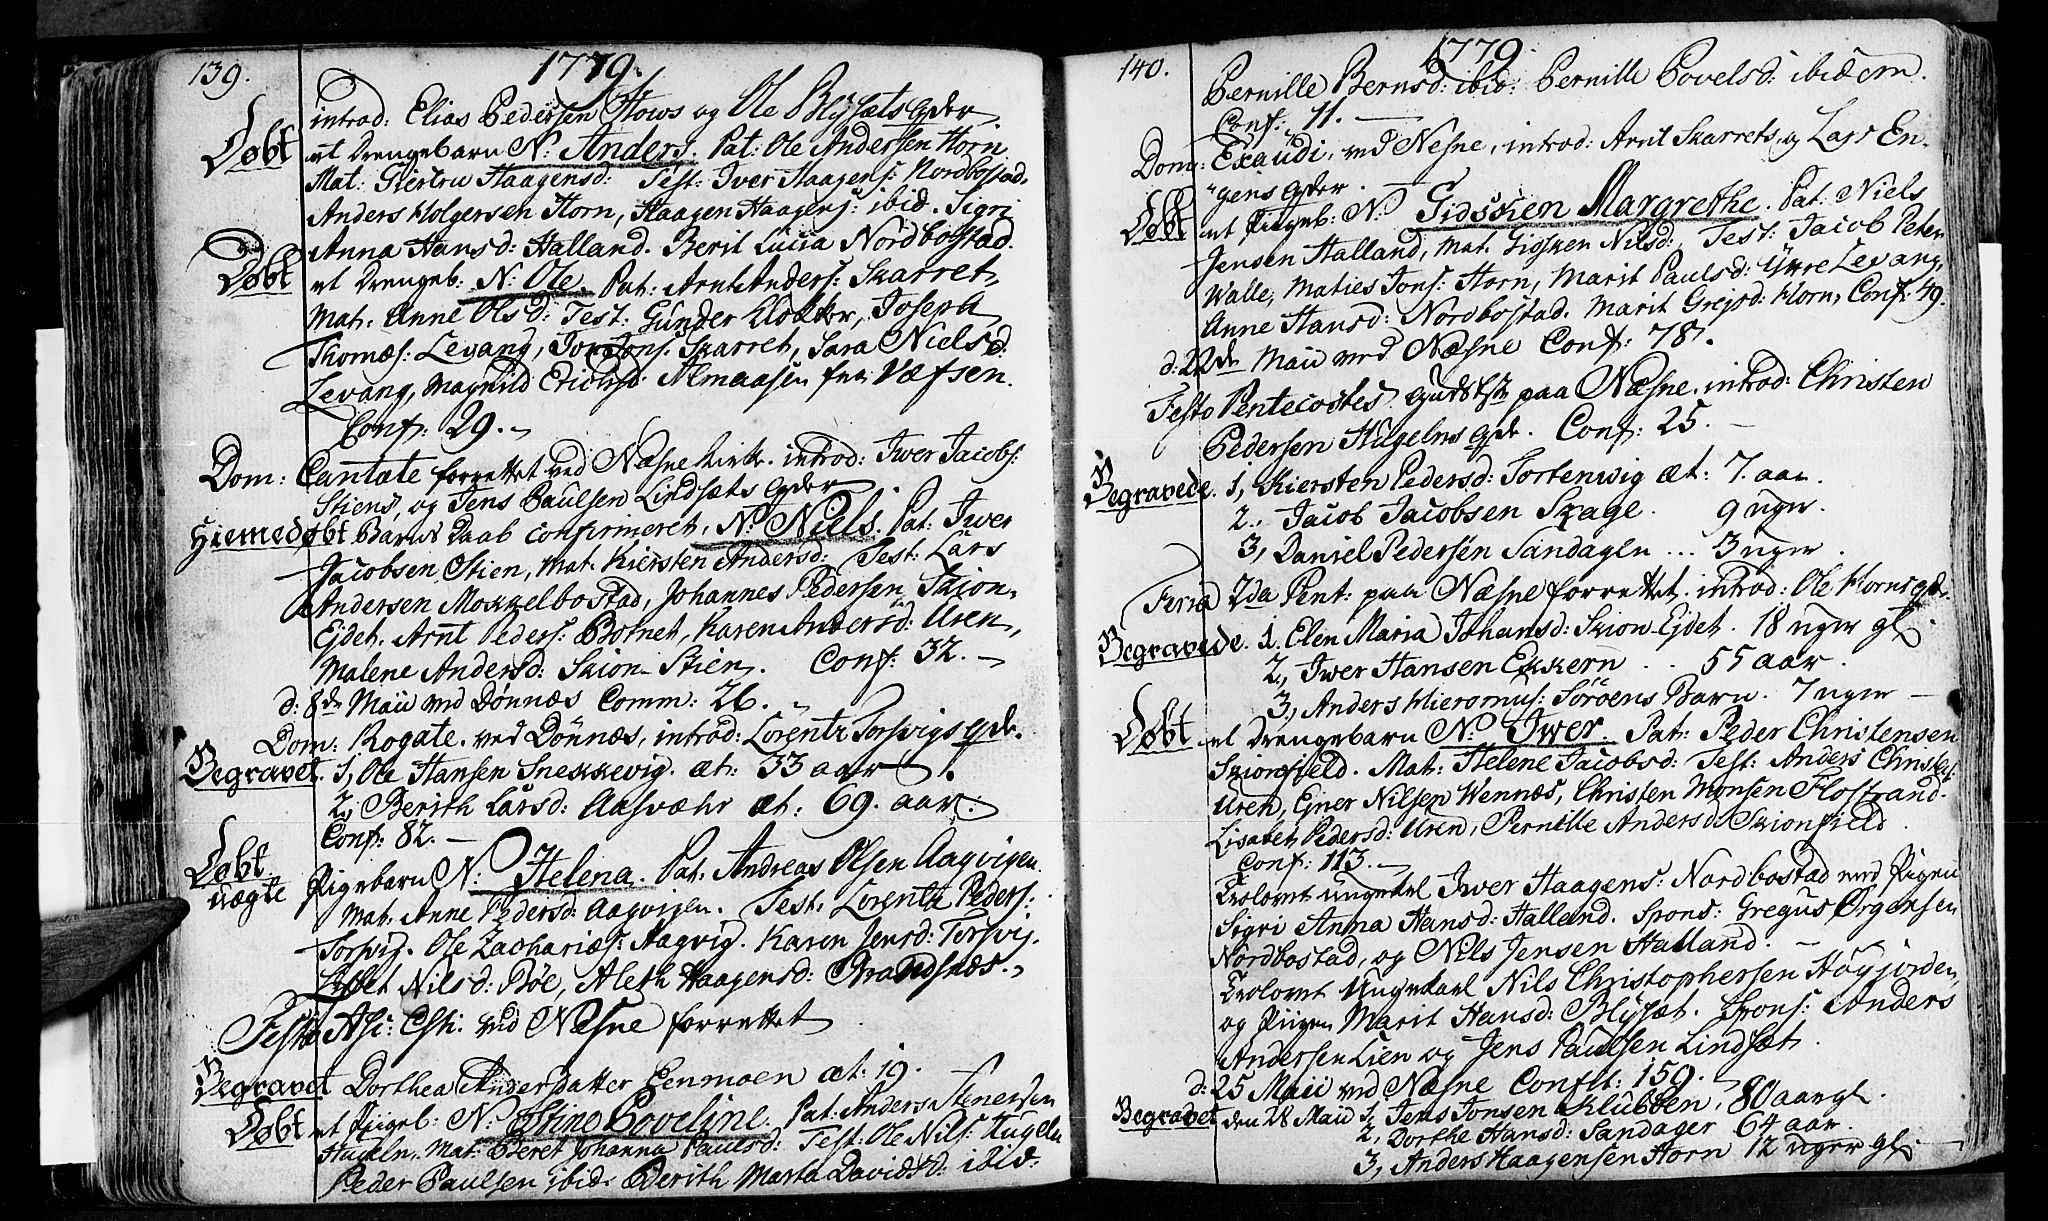 139. 1779.
introd: Elias Pedersen Hows og Ole Blysæts qvder
Døbt et Drengebarn N: Anders. Pat: Ole Andersen Horn
Mat: Giertru Haagensd: Test: Iver Haagens: Nordbostad.
Anders Holgersen Horn, Haagen Haagens: ibid. Sigri
Anna Hansd: Halland. Berit Lucia Nordbostad.
Døbt et Drengeb: N: Ole. Pat: Arnt Anders: Skarret,
Mat: Anne Olsd: Test: Gunder Klokker, Joseph
Thomæs: Levang, Jon Jons: Skarret, Sara Nielsd:
Levang, Magnild Erichsd: Almaasen fra Væfsen.
Conf: 29.
Dom: Cantate forrettet ved Næsne Kirke. introd: Iwer Jacobs:
Stiens, og Jens Paulsen Lindsæts qvder
Hiemedøbt Barns Daab confirmeret, N: Niels. Pat: Iwer
Jacobsen Stien, Mat: Kiersten Andersd: Test: Lars
Andersen Mokkelbostad, Johannes Pedersen Skion-
Ejdet. Arnt Peders: Botnet, Karen Andersd: Uren,
Malene Andersd: Skion-Stien. Conf: 32.
d: 8de Maii ved Dønnæs Comm: 26.
Dom: Rogate. ved Dönnæs, introd: Lorentz Torsvigs qvde.
Begravet. 1, Ole Hansen Snekkevig. æt: 33 aar
2, Berith Larsd: Aasvæhr æt: 69. aar.
Conf: 82.
Døbt uægte Pigebarn N: Helena. Pat: Andreas Olsen Aagvigen.
Mat: Anne Pedersd: Aagvigen. Test: Lorentz Peders:
Torsvig. Ole Zachariæs: Aagvig. Karen Jensd: Torsvig.
Nilsd: Bøe, Aleth Haagensd: Brandsnæs.
Festo Asc: Chr: ved Nesne forrettet
Begravet Dorthea Andersdatter Eenmoen æt: 19.
Døbt et Pigeb: N: Stino Poveline. Pat: Anders Steensen
Hugeln. Mat: Beret Johanna Paulsd: Test: Ole Nils: Hugeln
Peder Paulsen ibid. Marta Davidsd: ibid:
140. 1779.
Pernille Bernsd: ibid. Pernille Povelsd: ibidem.
Conf: 11.
Dom: Exaudi, ved Nesne, introd: Arnt Skarrets, og Lars En-
gens qvder.
Døbt et Pigeb: N: Gidskien Margrethe. Pat: Niels
Jensen Halland, Mat: Gidsken Nilsd:, Test: Jacob Peter
Walle, Maties Jons: Horn, Marit Paulsd: Yttre Levang,
Anne Hansd: Nordbostad. Marit Gregsd: Horn, Conf: 49.
d: 22de Maii ved Næsne Conf: 78.
Festo Pentecostes Gudstste paa Næsne. introd: Christen
Pedersen Hugelns qvde. Conf: 25.
Begravede. 1, Kiersten Pedersd: Sortenwig æt: 7. aar.
2., Jacob Jacobsen Skage. 9 uger.
3, Daniel Pedersen Sandagen ... 3 uger.
Feria 2da Pent: paa Næsne forrettet. introd: Ole Horns qvde.
Begravede. 1. Elen Maria Johansd: Skion-Ejdet. 18 uger gl.
2, Iwer Hansen Ekkern .. 55 aar.
3, Anders Hieromus: Söröens Barn. 7 uger
Døbt et Drengebarn N: Iwer. Pat: Peder Christensen
Skionsfield. Mat: Helene Jacobsd: Test: Anders Christens:
Uren, Ejner Nilsen Wennæs, Christen Monsen Flostrand.
Lisabet Pedersd: Uren, Pernille Andersd: Skionfield.
Conf: 113.
Trolovet ungekarl Iwer Haagens: Nordbostad med Pigen
Sigri Anna Hansd: Halland. Spons: Gregus Ørgensen
Nordbostad, og Nils Jensen Halland.
Trolovet Ungekarl Nils Christophersen Høyjorden,
og Pigen Marit Hansd: Blysæt. Spons: Anders
Andersen Lien og Jens Paulsen Lindsæt.
d: 25 Maii ved Næsne Conft: 159.
Begravet den 28 Maii 1, Jens Jonsen Klubben, 80 aar gl.
2, Dorthe Hansd: Sandager 64 aar.
3, Anders Haagensen Horn 12 uger gl.